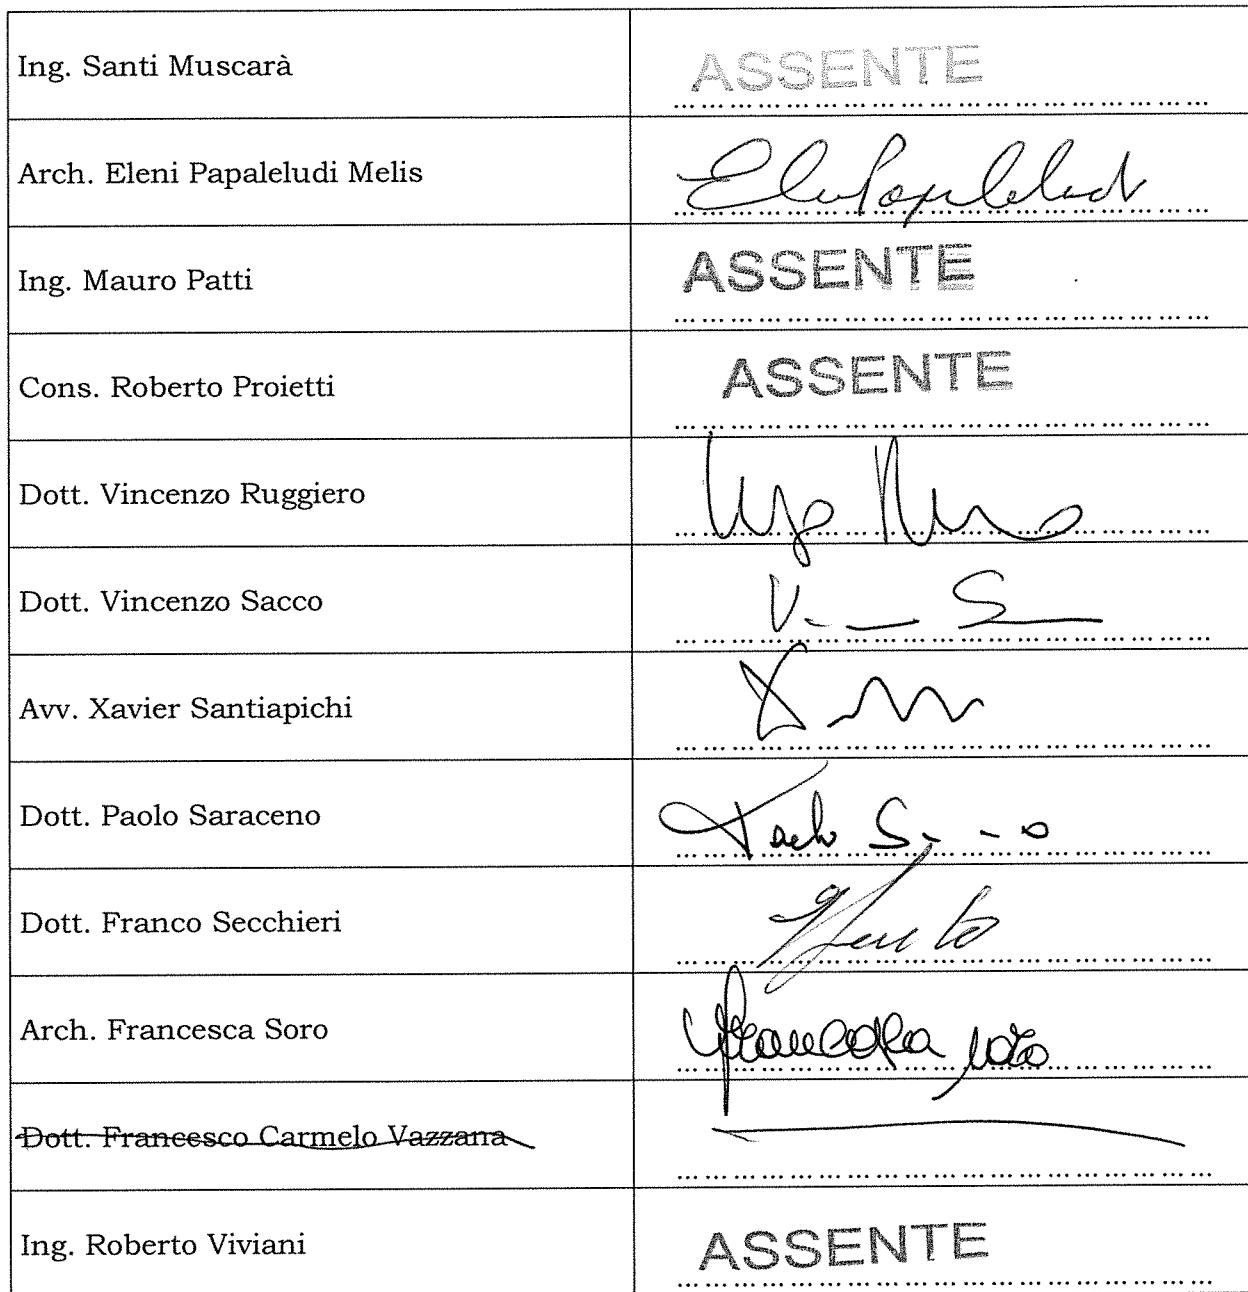 Ing. Santi Muscarà
ASSENTE
Arch. Eleni Papaleludi Melis
Ing. Mauro Patti
ASSENTE
Cons. Roberto Proietti
ASSENTE
Dott. Vincenzo Ruggiero
Dott. Vincenzo Sacco
Avv. Xavier Santiapichi
Dott. Paolo Saraceno
Dott. Franco Secchieri
Arch. Francesca Soro
Francesca Soro
Dott. Francesco Carmelo Vazzana
Ing. Roberto Viviani
ASSENTE